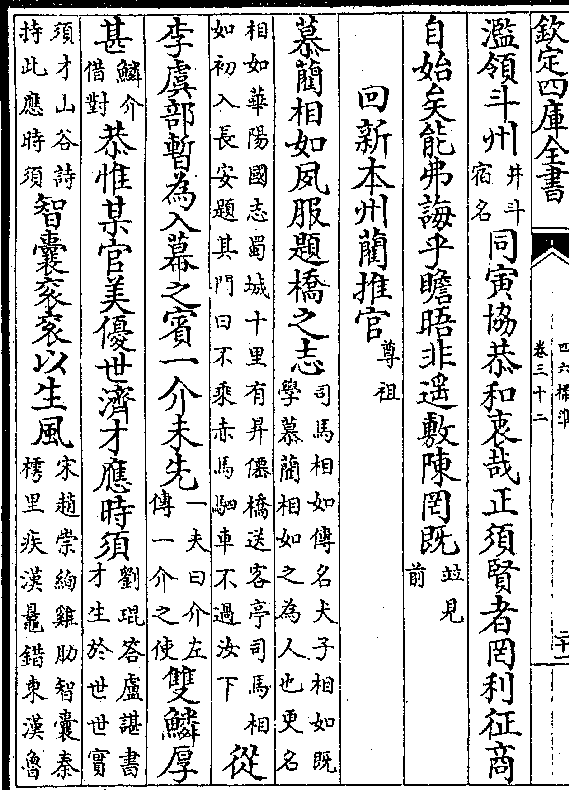 欽定四庫全書
四六標準
卷三十二
二十一
濫領斗州
井斗
宿名
同寅協恭和衷哉正須賢者罔利征商
自始矣能弗誨乎瞻晤非遥敷陳罔既
並見
前
回新本州藺推官
尊
祖
慕藺相如夙服題橋之志
司馬相如傳名犬子相如既
學慕藺相如之為人也更名
相如華陽國志蜀城十里有昇僊橋送客亭司馬相
如初入長安題其門曰不乘赤馬駟車不過汝下
從
李虞部暫為入幕之賓一介未先
一夫曰介左
傳一介之使
雙鱗厚
甚
鱗介
借對
恭惟某官美優世濟才應時須
劉琨答盧諶書
才生於世世實
須才山谷詩
持此應時須
智囊衮衮以生風
宋趙崇絢雞肋智囊秦
樗里疾漢鼂錯東漢魯